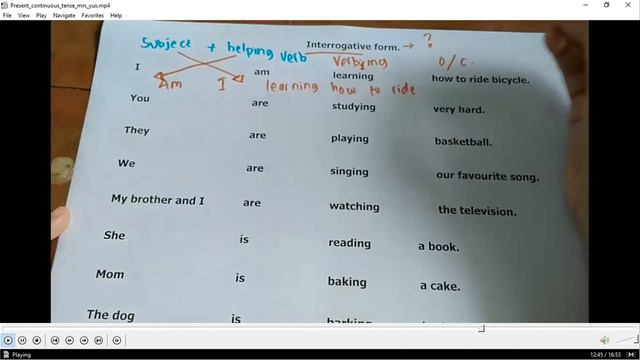 Present_continuous_tense_mrs_yus.mp4
File View Play Navigate Favorites Help
Interrogative form. → ?
Subject + helping verb verbing O/C
I am learning how to ride bicycle.
Am I learning how to ride
You are studying very hard.
They are playing basketball.
We are singing our favourite song.
My brother and I are watching the television.
She is reading a book.
Mom is baking a cake.
The dog is barking
Playing 12:45 / 16:53